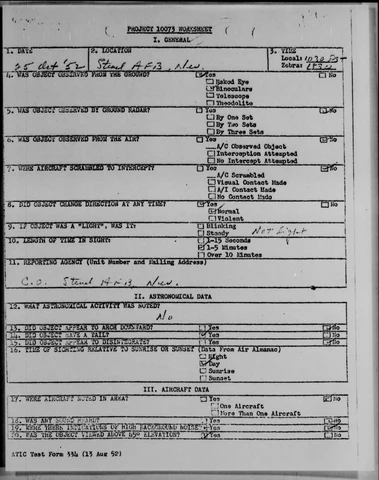 PROJECT 10073 WORKSHEET
I. GENERAL
1. DATE
25 Oct '52
2. LOCATION
AFB, Nev.
3. TIME
Local:
Zebra:
4. WAS OBJECT OBSERVED FROM THE GROUND? Yes No
Naked Eye
Binoculars
Telescope
Theodolite
5. WAS OBJECT OBSERVED BY GROUND RADAR? Yes No
By One Set
By Two Sets
By Three Sets
6. WAS OBJECT OBSERVED FROM THE AIR? Yes No
A/C Observed Object
Interception Attempted
No Intercept Attempted
7. WERE AIRCRAFT SCRAMBLED TO INTERCEPT? Yes No
A/C Scrambled
Visual Contact Made
A/I Contact Made
No Contact Made
8. DID OBJECT CHANGE DIRECTION AT ANY TIME? Yes No
Normal
Violent
9. IF OBJECT WAS A "LIGHT", WAS IT: Blinking
Steady Not Light
10. LENGTH OF TIME IN SIGHT: 1-15 Seconds
1-5 Minutes
Over 10 Minutes
11. REPORTING AGENCY (Unit Number and Mailing Address)
C.O. AFB, Nev.
II. ASTRONOMICAL DATA
12. WHAT ASTRONOMICAL ACTIVITY WAS NOTED?
No
13. DID OBJECT APPEAR TO ARCH DOWNWARD? Yes No
14. DID OBJECT HAVE A TAIL? Yes No
15. DID OBJECT APPEAR TO DISINTEGRATE? Yes No
16. TIME OF SIGHTING RELATIVE TO SUNRISE OR SUNSET (Data From Air Almanac)
Night
Day
Sunrise
Sunset
III. AIRCRAFT DATA
17. WERE AIRCRAFT NOTED IN AREA? Yes No
One Aircraft
More Than One Aircraft
18. WAS ANY SOUND HEARD? Yes No
19. WERE THERE INDICATIONS OF HIGH BACKGROUND NOISE? Yes No
20. WAS THE OBJECT VIEWED ABOVE 45° ELEVATION? Yes No
ATIC Test Form 334 (13 Aug 52)